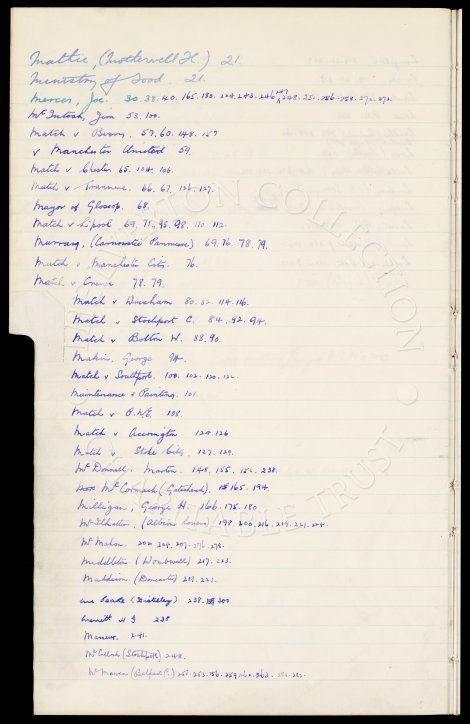 Mattie, (Motherwell H.) 21.
Ministry of Food. 21.
Mercer, Joe. 30. 38. 40. 165. 180. 224. 243. 246. 247 248. 251. 256. 258. 272.
McIntosh, Jim 53. 100.
Match v Bury. 57. 60. 148. 157
v Manchester United 59.
Match v Chester 65. 104. 106.
Match v Tranmere. 66. 67. 126. 127.
Mayor of Glossop. 68.
Match v L'pool 69. 75. 95. 98. 110. 112.
Murray, (Carnoustie Panmure) 69. 76. 78. 79.
Match v Manchester City. 76.
Match v Crewe 78. 79.
Match v Wrexham 80. 82. 114. 116.
Match v Stockport C. 84. 92. 94.
Match v Bolton W. 88. 90.
Makin, George 94.
Match v Southport. 100. 102. 120. 122.
Maintenance & Painting. 101.
Match v P.N.E. 108.
Match v Accrington 124. 126
Match v Stoke City. 127. 129.
McDonnell, Martin. 148. 155. 238.
McCormack (Gateshead). 165. 194.
Milligan, George H. 166. 175. 180
(Albion Rovers) 198. 200. 216. 219. 221. 224.
McMahon. 202. 204. 207. 276. 278.
Middleton (Wombwell) 217. 223.
Maddison. (Doncaster) 219. 221.
238. 300
238
241.
McCulloch (Stockport) 248.
McMaven (Belfast C.) 251. 253. 256. 259. 263.
EVERTON COLLECTION CHARITABLE TRUST